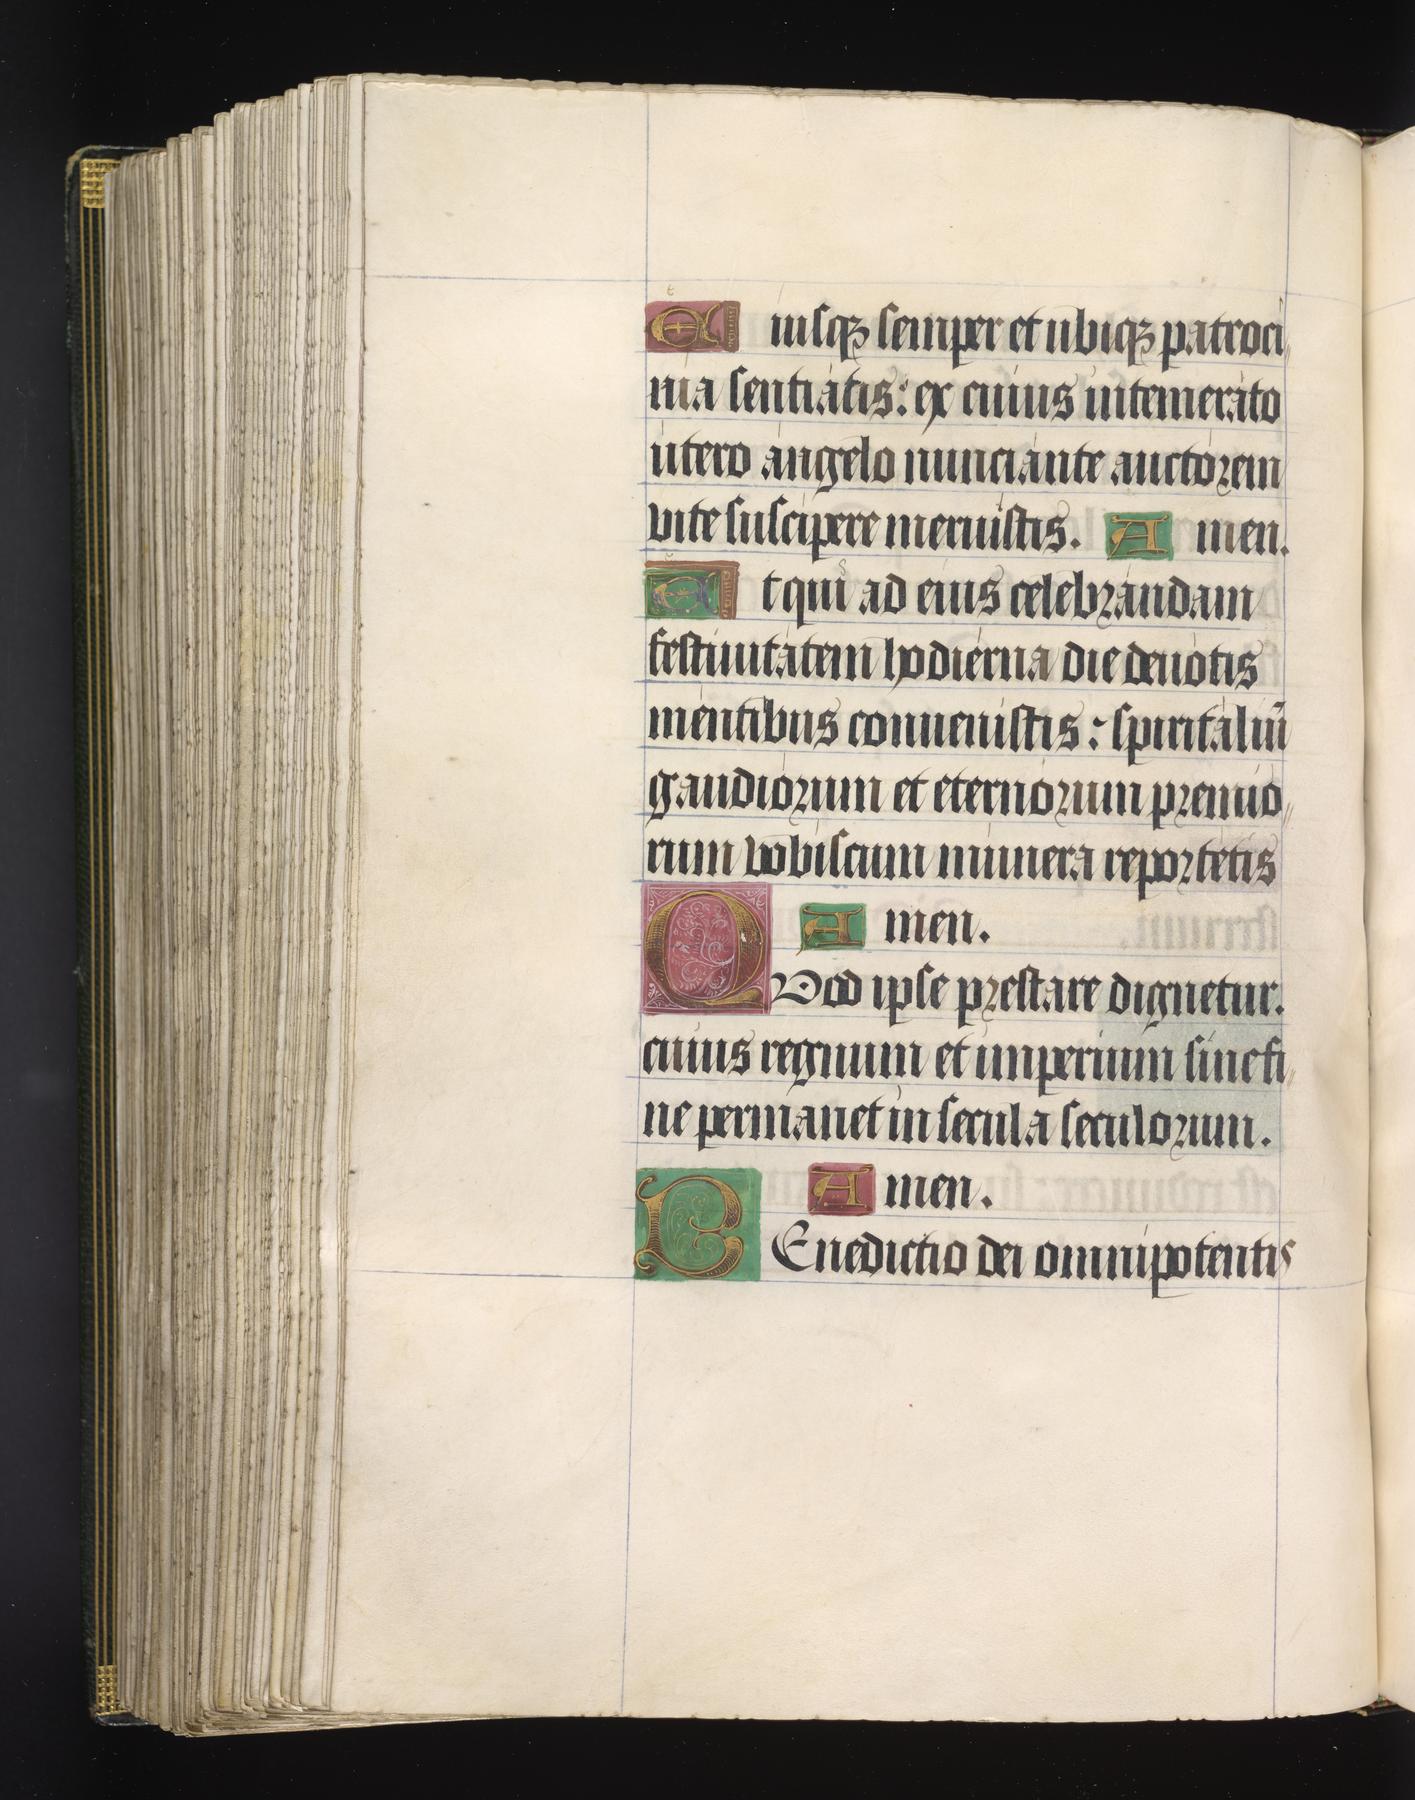 Eiusqꝫ semper et ubiqꝫ patroci//
nia sentiatis: ex cuius intemerato
utero angelo nunciante auctorem
vite suscipere meruistis. Amen.
Et qui ad eius celebrandam
festiuitatem hodierna die deuotis
mentibus conuenistis: spiritaliū
gaudiorum et eternorum premio//
rum vobiscum munera reportetis
Amen.
QVod ipse prestare dignetur.
cuius regnum et imperium sine fi//
ne permanet in secula seculorum.
Amen.
BEnedictio dei omnipotentis